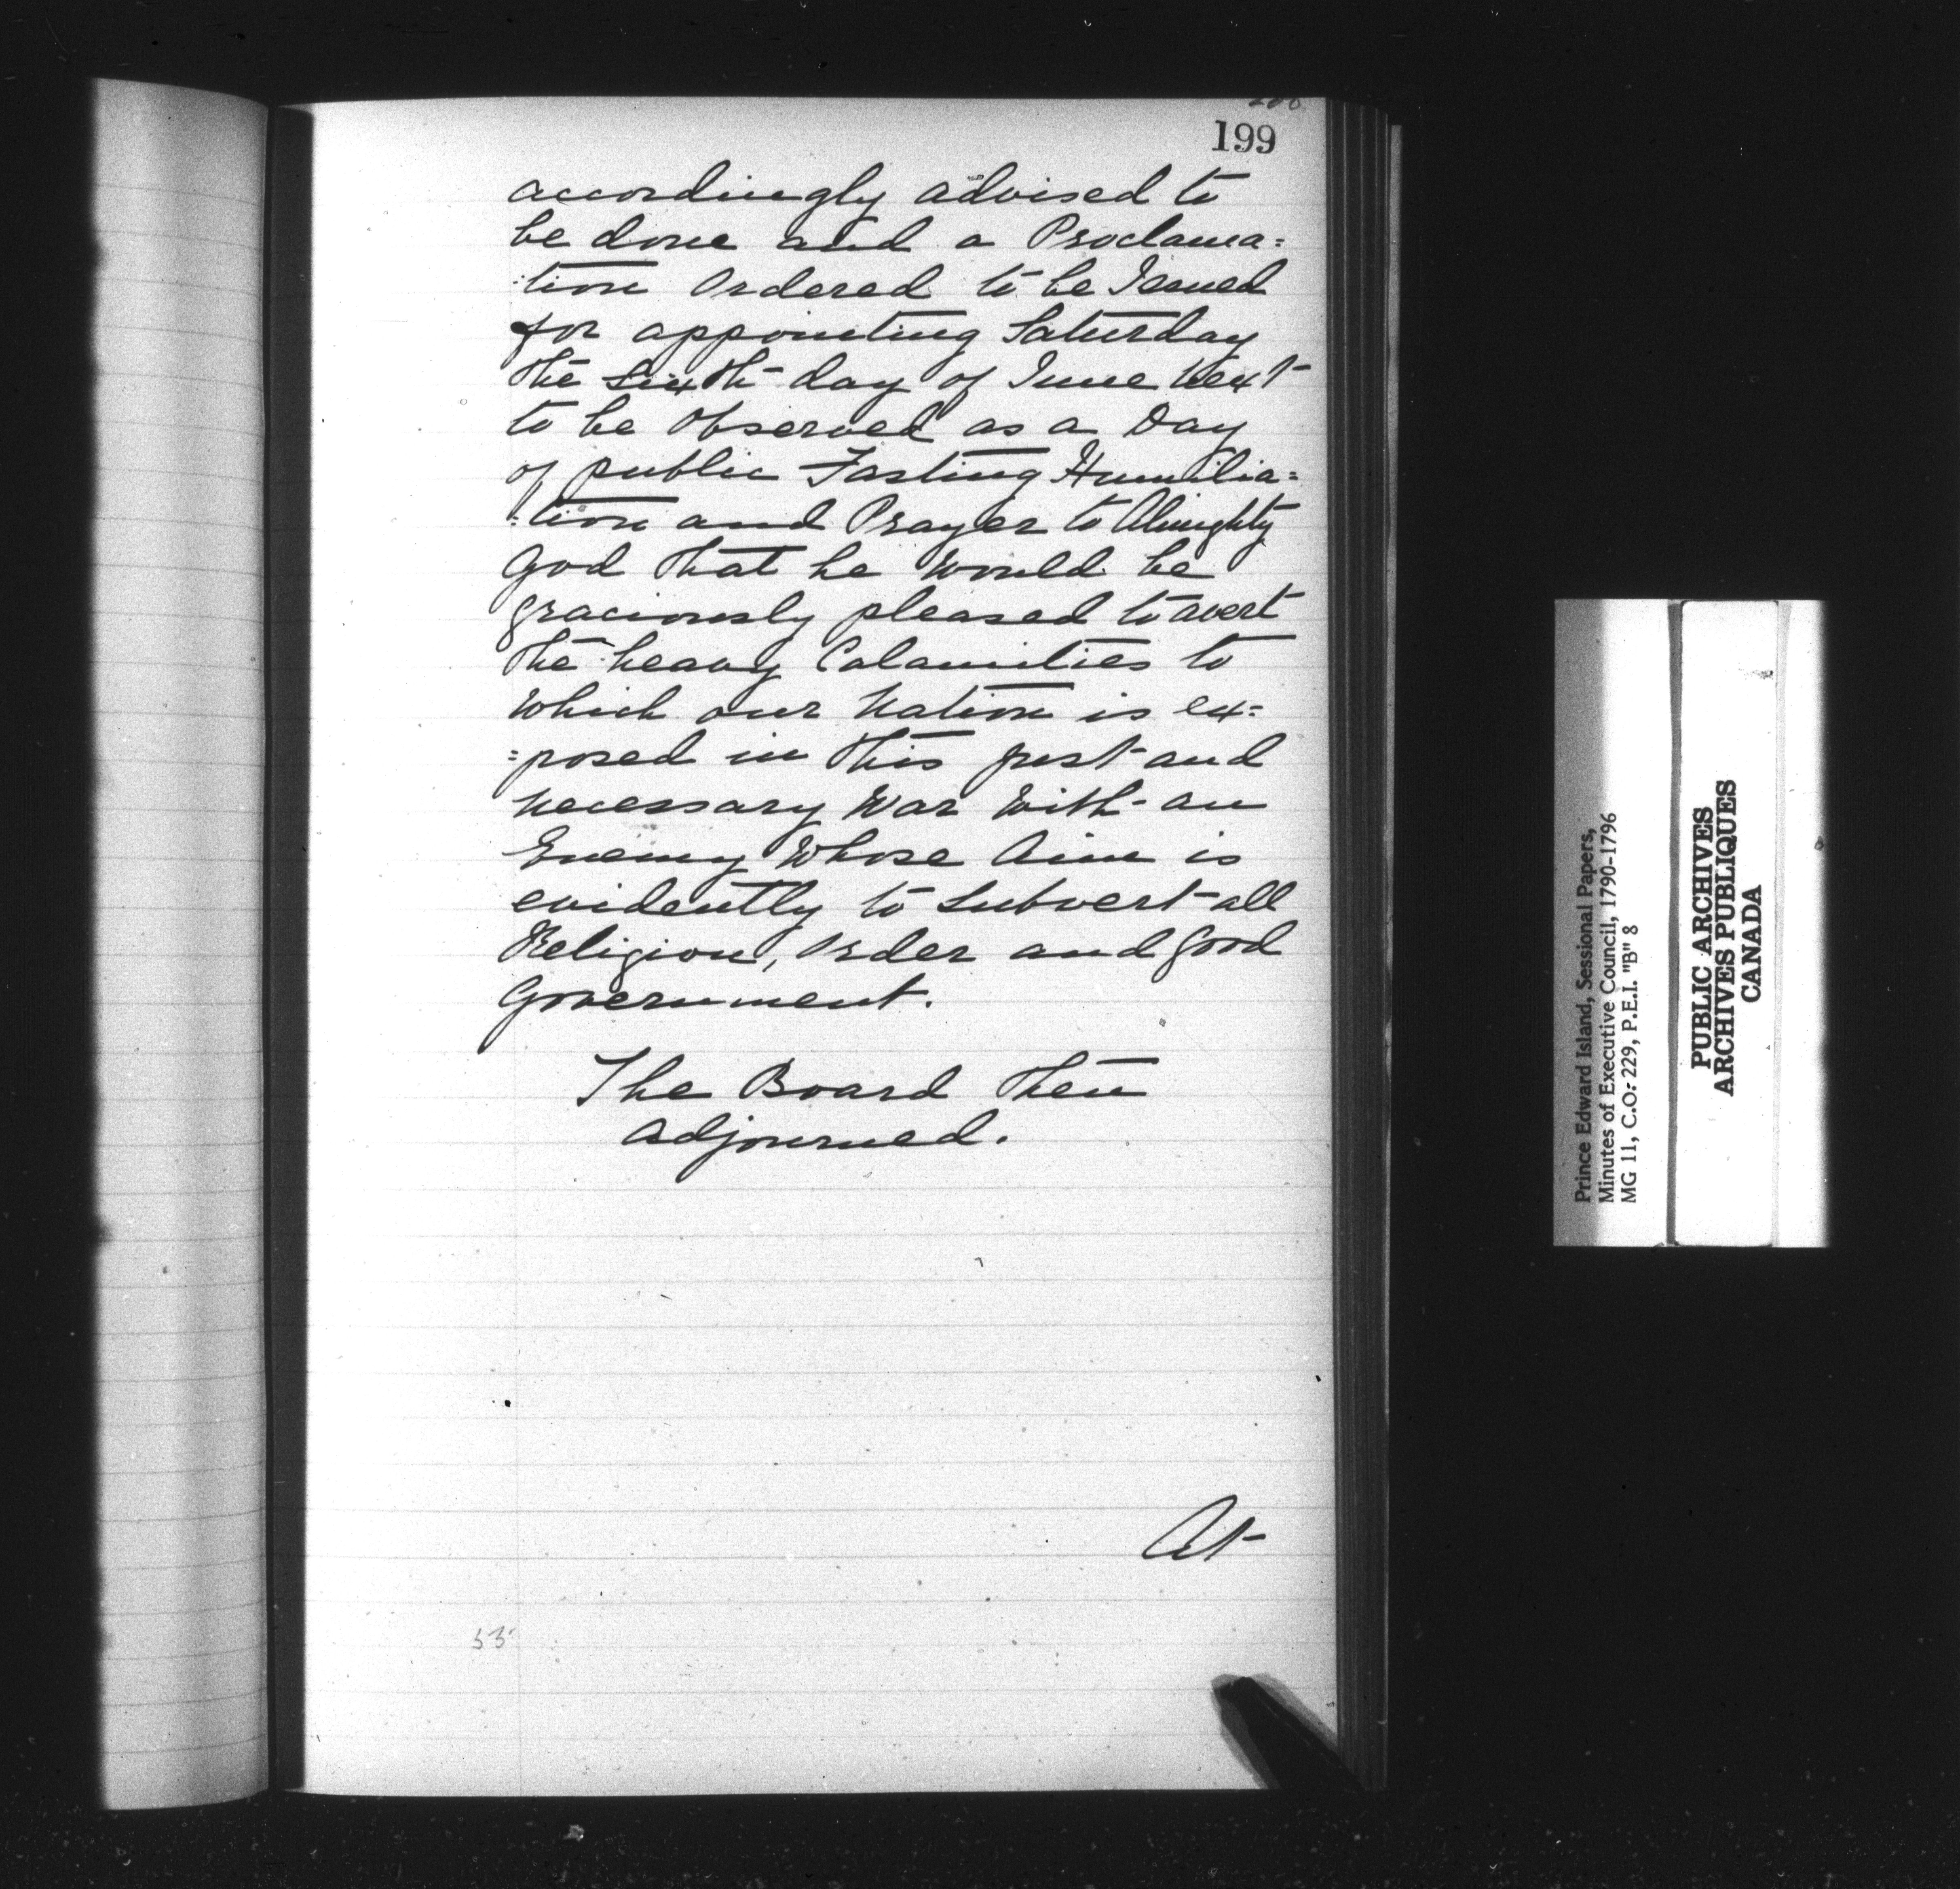 199
accordingly advised to
be done and a Proclama=
:tion Ordered to be Issued
for appointing Saturday
the Sixth day of June next
to be Observed as a Day
of public Fasting Humilia=
=tion and Prayer to Almighty
God that he would be
graciously pleased to avert
the heavy Calamities to
which our Nation is ex=
=posed in this just and
necessary War with an
Enemy Whose Aim is
evidently to Subvert all
Religion, Order and good
Government.
The Board then
adjourned.
At
55
Prince Edward Island, Sessional Papers,
Minutes of Executive Council, 1790-1796
MG 11, C.O. 229, P.E.I. "B" 8
PUBLIC ARCHIVES
ARCHIVES PUBLIQUES
CANADA